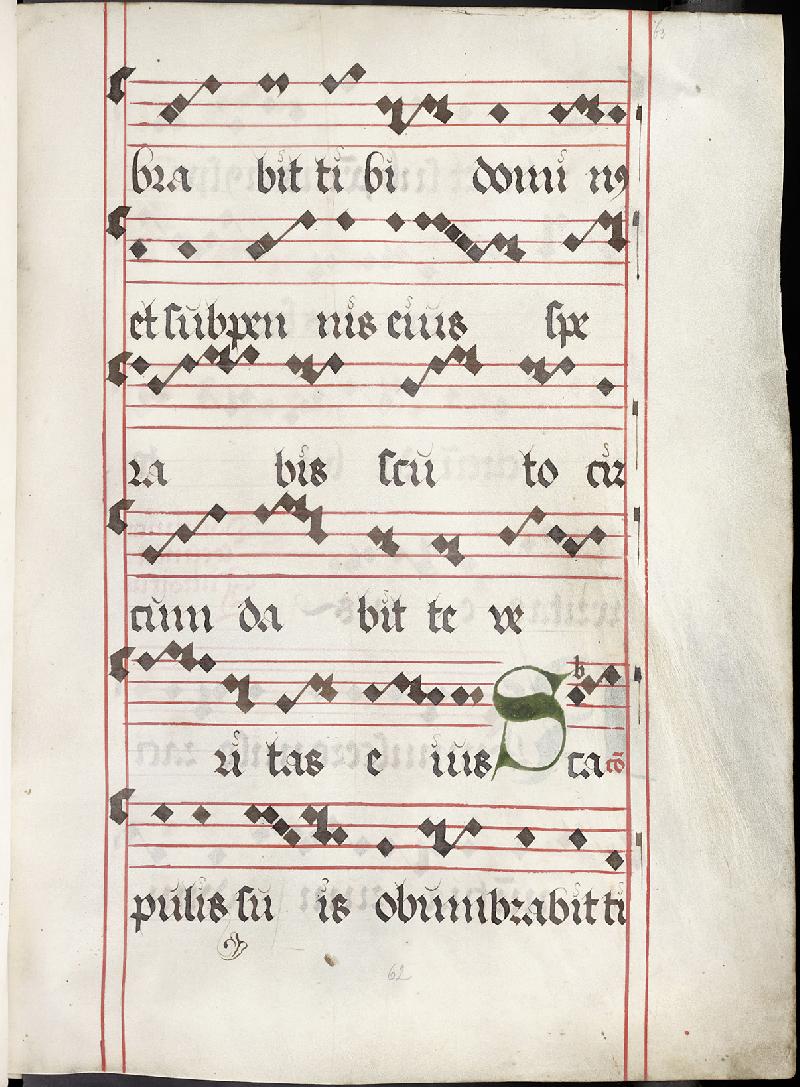 63
bra bit ti bi domi nꝰ
et sub pen nis eius spe
ra bis scu to cir
cum da bit te ve
ri tas e ius S ca cō
b
pulis su is obumbrabit ti
62